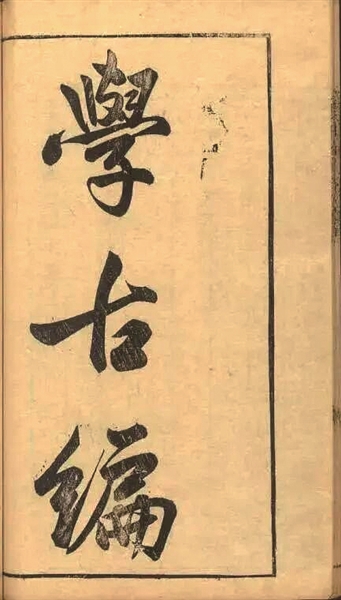 學古編